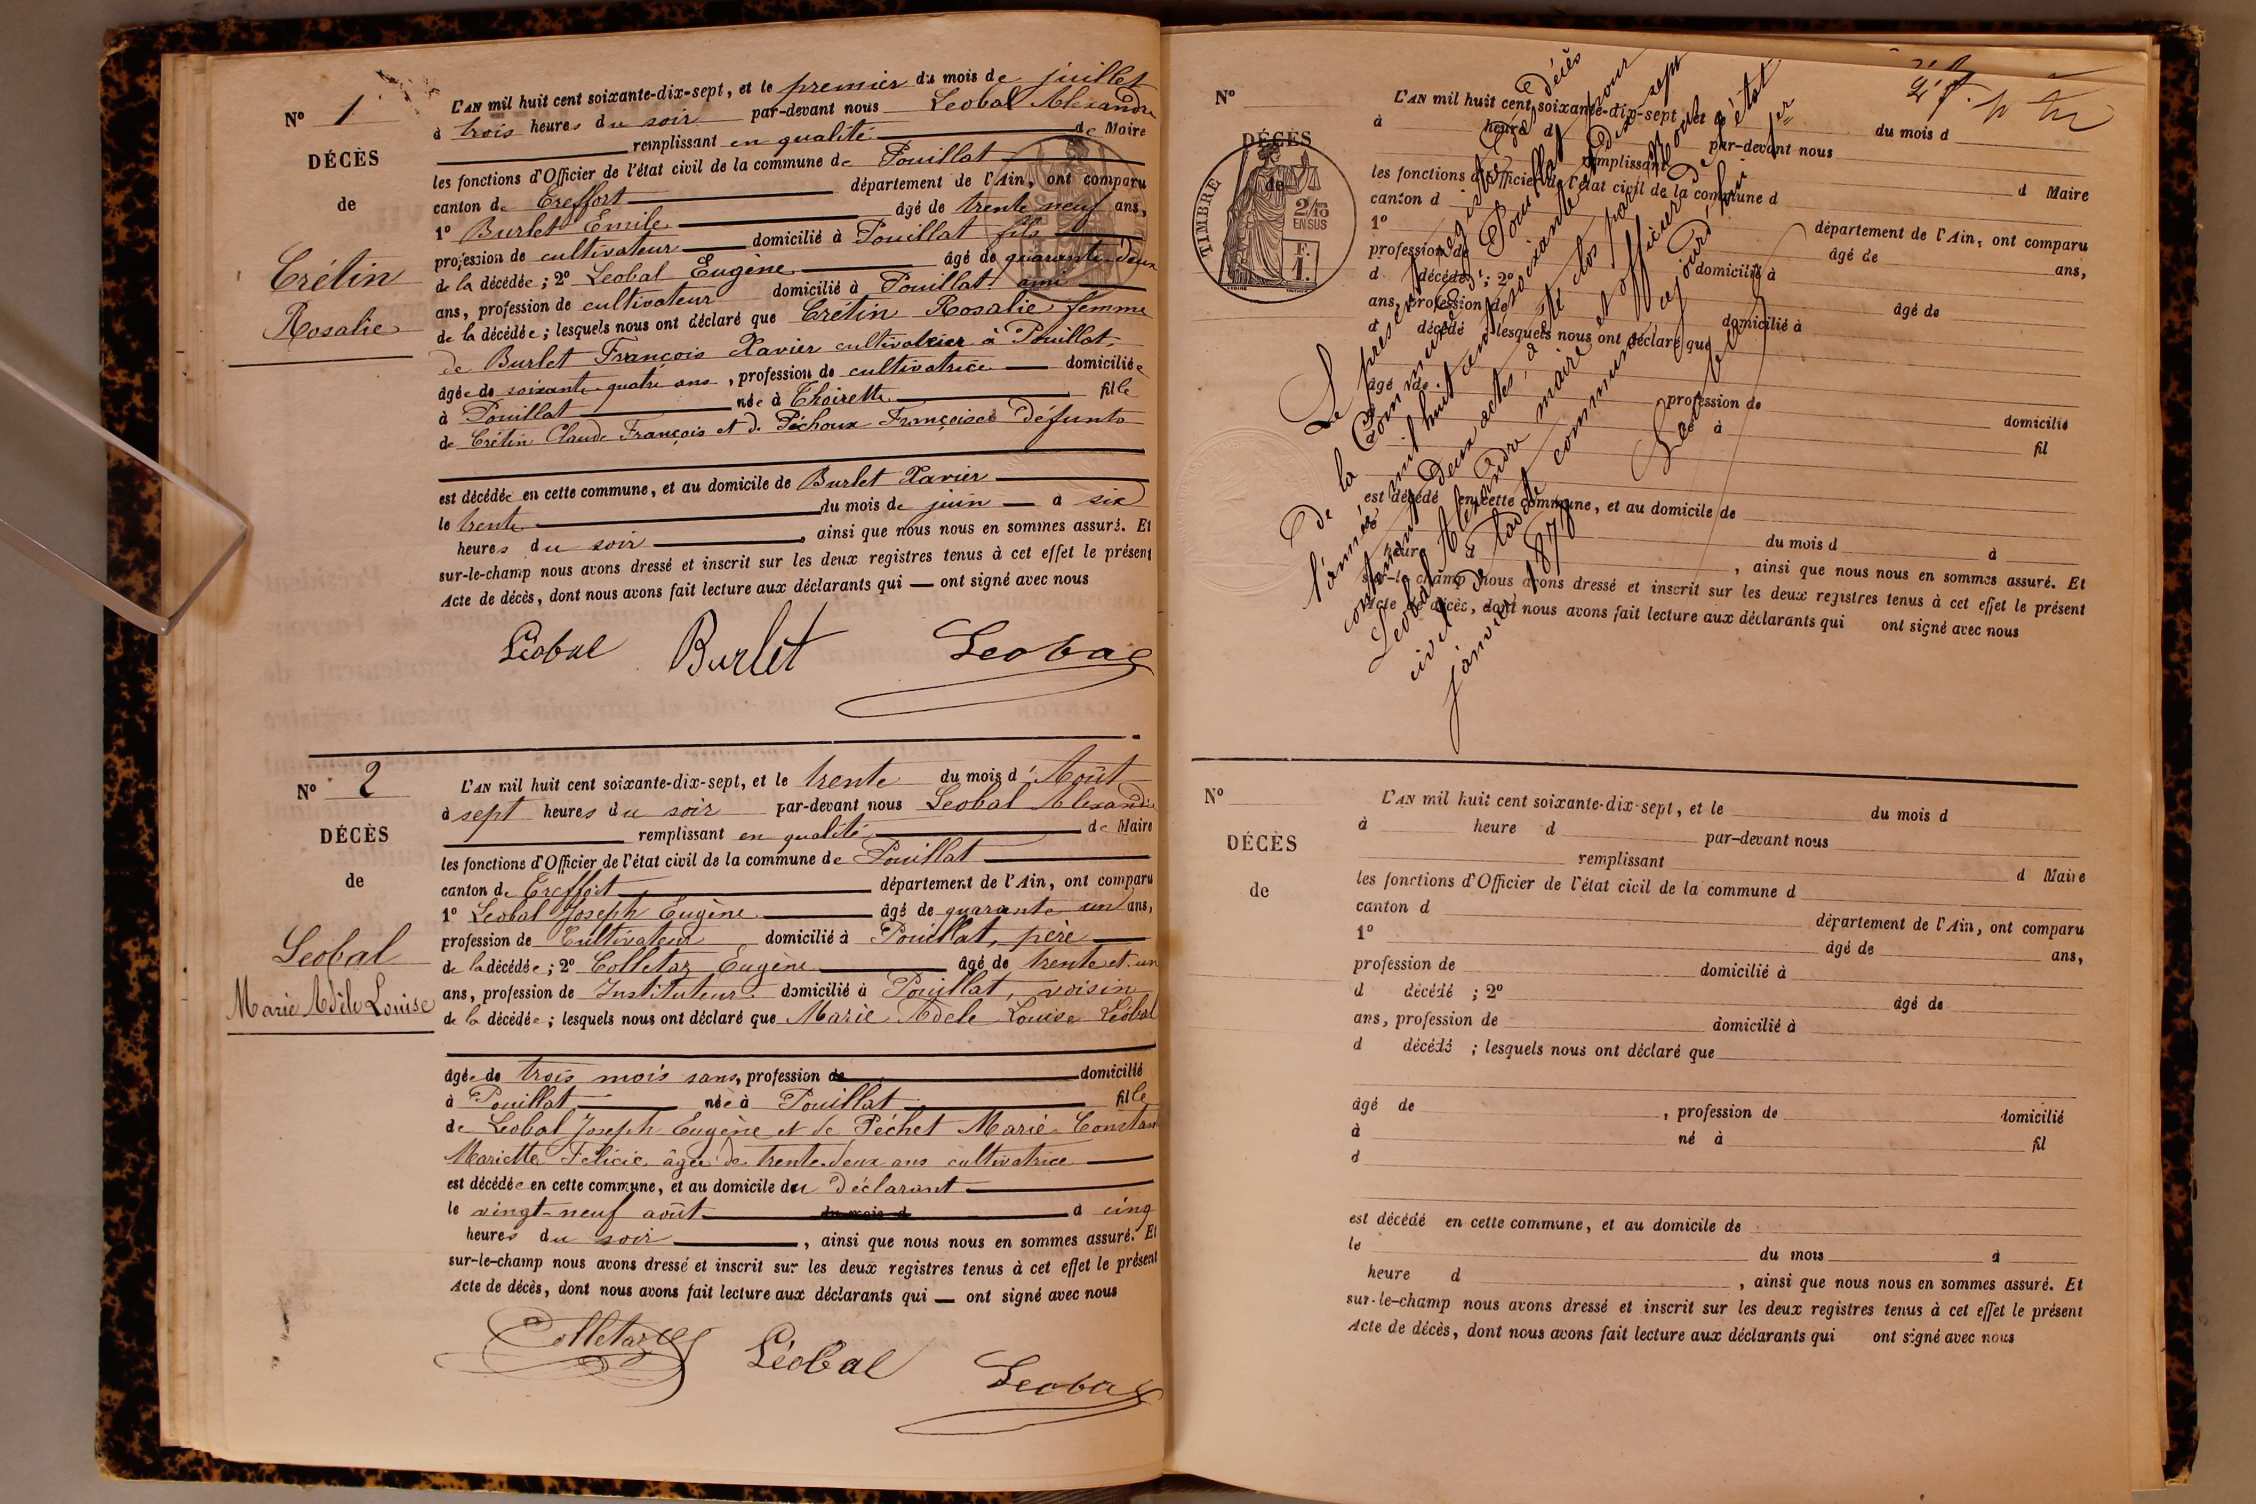 N° 1
DÉCÈS
de
Crétin
Rosalie
L'AN mil huit cent soixante-dix-sept, et le premier du mois de juillet
à trois heures du soir par-devant nous Leobal Alexandre
remplissant en qualité de Maire
les fonctions d'Officier de l'état civil de la commune de Pouillat
canton de Treffort département de l'Ain, ont comparu
1° Burlet Emile âgé de trente neuf ans,
profession de cultivateur domicilié à Pouillat fils
de la décédée; 2° Leobal Eugène âgé de quarante-deux
ans, profession de cultivateur domicilié à Pouillat ami
de la décédée; lesquels nous ont déclaré que Crétin Rosalie femme
de Burlet François Xavier cultivateur à Pouillat,
âgée de soixante quatre ans, profession de cultivatrice domiciliée
à Pouillat née à Thoirette fille
de Crétin Claude François et de Péchoux Françoise défunts
est décédée en cette commune, et au domicile de Burlet Xavier
le trente du mois de juin à six
heures du soir, ainsi que nous nous en sommes assuré. Et
sur-le-champ nous avons dressé et inscrit sur les deux registres tenus à cet effet le présent
Acte de décès, dont nous avons fait lecture aux déclarants qui ont signé avec nous
Léobal Burlet Leobal
N° 2
DÉCÈS
de
Leobal
Marie Adèle Louise
L'AN mil huit cent soixante-dix-sept, et le trente du mois d'Août
à sept heures du soir par-devant nous Leobal Alexandre
remplissant en qualité de Maire
les fonctions d'Officier de l'état civil de la commune de Pouillat
canton de Treffort département de l'Ain, ont comparu
1° Leobal Joseph Eugène âgé de quarante un ans,
profession de Cultivateur domicilié à Pouillat, père
de la décédée; 2° Colletaz Eugène âgé de trente et un
ans, profession de Instituteur domicilié à Pouillat, voisin
de la décédée; lesquels nous ont déclaré que Marie Adele Louise Léobal
âgée de trois mois sans, profession de domicilié
à Pouillat née à Pouillat fille
de Léobal Joseph Eugène et de Péchet Marie Constan
Mariette Félicie âgée de trente-deux ans cultivatrice
est décédée en cette commune, et au domicile du déclarant
le vingt-neuf août du mois d à cinq
heures du soir, ainsi que nous nous en sommes assuré. Et
sur-le-champ nous avons dressé et inscrit sur les deux registres tenus à cet effet le présent
Acte de décès, dont nous avons fait lecture aux déclarants qui ont signé avec nous
Colletaz Léobal Leobal
N°
DÉCÈS
de
TIMBRE
2/10
EN SUS
F.
1.
L'AN mil huit cent soixante-dix-sept, et le du mois d
à heure d par-devant nous
remplissant d Maire
les fonctions d'Officier de l'état civil de la commune d
canton d département de l'Ain, ont comparu
1° âgé de ans,
profession de domicilié à
d décédé ; 2° âgé de
ans, profession de domicilié à
d décédé lesquels nous ont déclaré que
âgé de profession de domicilié
à né à fil
est décédé en cette commune, et au domicile de
du mois d à
heure d, ainsi que nous nous en sommes assuré. Et
sur-le-champ nous avons dressé et inscrit sur les deux registres tenus à cet effet le présent
Acte de décès, dont nous avons fait lecture aux déclarants qui ont signé avec nous
Le présent registre des décès
de la Commune de Pouillat pour
l'année mil huit cent soixante dix sept
contenant deux actes, a été clos par nous
Leobal Alexandre maire et officier de l'état
civil de ladite commune ajourd'hui 1er
janvier 1878
Leobal
N°
DÉCÈS
de
L'AN mil huit cent soixante-dix-sept, et le du mois d
à heure d par-devant nous
remplissant d Maire
les fonctions d'Officier de l'état civil de la commune d
canton d département de l'Ain, ont comparu
1° âgé de ans,
profession de domicilié à
d décédé ; 2° âgé de
ans, profession de domicilié à
d décédé ; lesquels nous ont déclaré que
âgé de , profession de domicilié
à né à fil
d
est décédé en cette commune, et au domicile de
le du mois à
heure d , ainsi que nous nous en sommes assuré. Et
sur-le-champ nous avons dressé et inscrit sur les deux registres tenus à cet effet le présent
Acte de décès, dont nous avons fait lecture aux déclarants qui ont signé avec nous